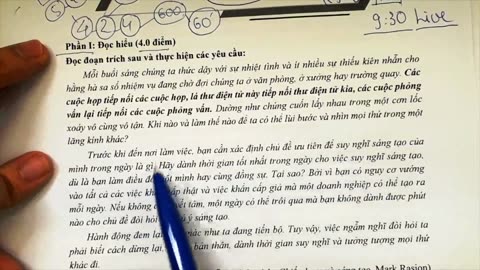 5 4 2 4 600 60
9:30 Live
Phần I: Đọc hiểu (4.0 điểm)
Đọc đoạn trích sau và thực hiện các yêu cầu:
Mỗi buổi sáng chúng ta thức dậy với sự nhiệt tình và ít nhiều sự thiếu kiên nhẫn cho
hằng hà sa số nhiệm vụ đang chờ đợi chúng ta ở văn phòng, ở xưởng hay trường quay. Các
cuộc họp tiếp nối các cuộc họp, lá thư điện tử này tiếp nối thư điện tử kia, các cuộc phỏng
vấn lại tiếp nối các cuộc phỏng vấn. Dường như chúng cuốn lấy nhau trong một cơn lốc
xoáy vô cùng vô tận. Khi nào và làm thế nào để ta có thể lùi bước và nhìn mọi thứ trong một
lăng kính khác?
Trước khi đến nơi làm việc, bạn cần xác định chủ đề ưu tiên để suy nghĩ sáng tạo của
mình trong ngày là gì. Hãy dành thời gian tốt nhất trong ngày cho việc suy nghĩ sáng tạo,
dù là bạn làm điều đó một mình hay cùng đồng sự. Tại sao? Bởi vì bạn có nguy cơ vướng
vào tất cả các việc khẩn cấp thật và việc khẩn cấp giả mà một doanh nghiệp có thể tạo ra
mỗi ngày. Nếu không quyết tâm, một ngày có thể trôi qua mà bạn không dành được phút
nào cho chủ đề đòi hỏi có ý sáng tạo.
Hành động đem lại giác như ta đang tiến bộ. Tuy vậy, việc ngẫm nghĩ đòi hỏi ta
phải biết cách dừng lại, bản thân, dành thời gian suy nghĩ và tưởng tượng mọi thứ
khác đi.
sáng tạo, Mark Rasion)